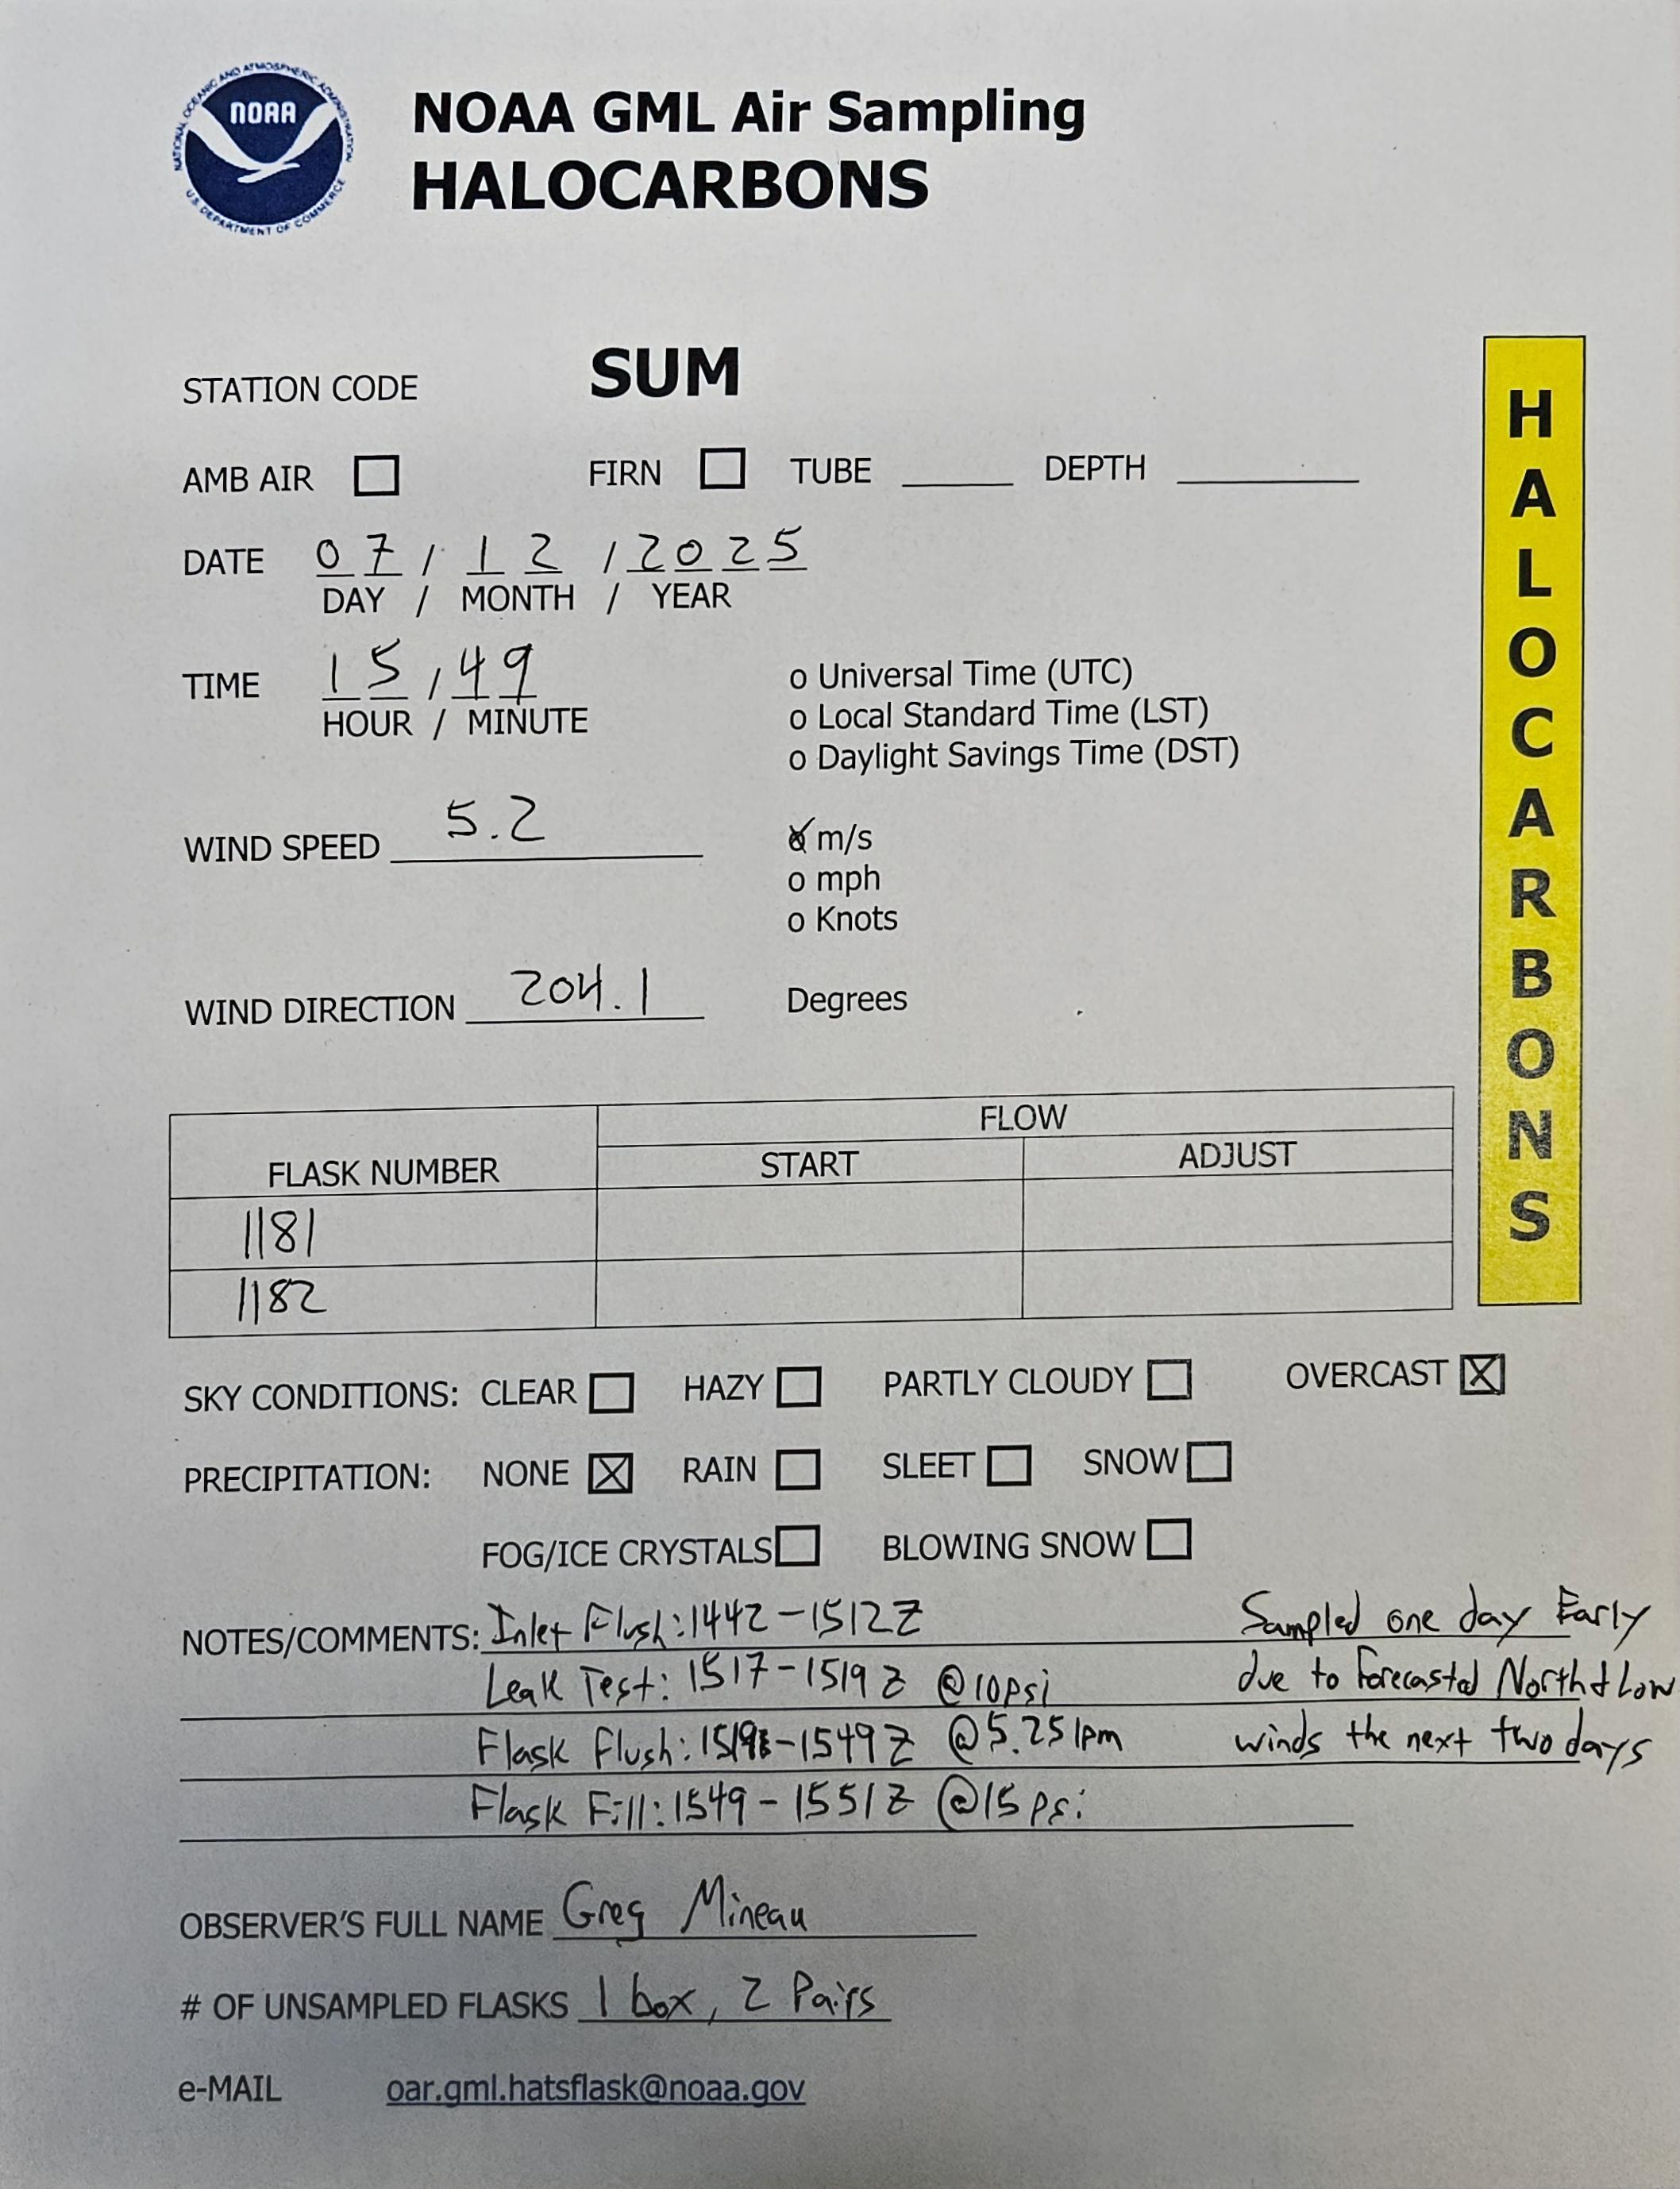 NATIONAL OCEANIC AND ATMOSPHERIC ADMINISTRATION
NOAA
U.S. DEPARTMENT OF COMMERCE
NOAA GML Air Sampling
HALOCARBONS
STATION CODE SUM
AMB AIR FIRN TUBE DEPTH
DATE 07/12/2025
DAY / MONTH / YEAR
TIME 15/49
HOUR / MINUTE
o Universal Time (UTC)
o Local Standard Time (LST)
o Daylight Savings Time (DST)
WIND SPEED 5.2
o m/s
o mph
o Knots
WIND DIRECTION 204.1 Degrees
FLOW
FLASK NUMBER START ADJUST
1181
1182
SKY CONDITIONS: CLEAR HAZY PARTLY CLOUDY OVERCAST X
PRECIPITATION: NONE X RAIN SLEET SNOW
FOG/ICE CRYSTALS BLOWING SNOW
NOTES/COMMENTS: Inlet Flush: 1442-1512Z Sampled one day Early
Leak Test: 1517-1519Z @10psi due to Forecasted North & Low
Flask Flush: 1519-1549Z @5.25lpm winds the next two days
Flask Fill: 1549-1551Z @15psi
OBSERVER'S FULL NAME Greg Mineau
# OF UNSAMPLED FLASKS 1 box, 2 Pairs
e-MAIL oar.gml.hatsflask@noaa.gov
HALOCARBONS